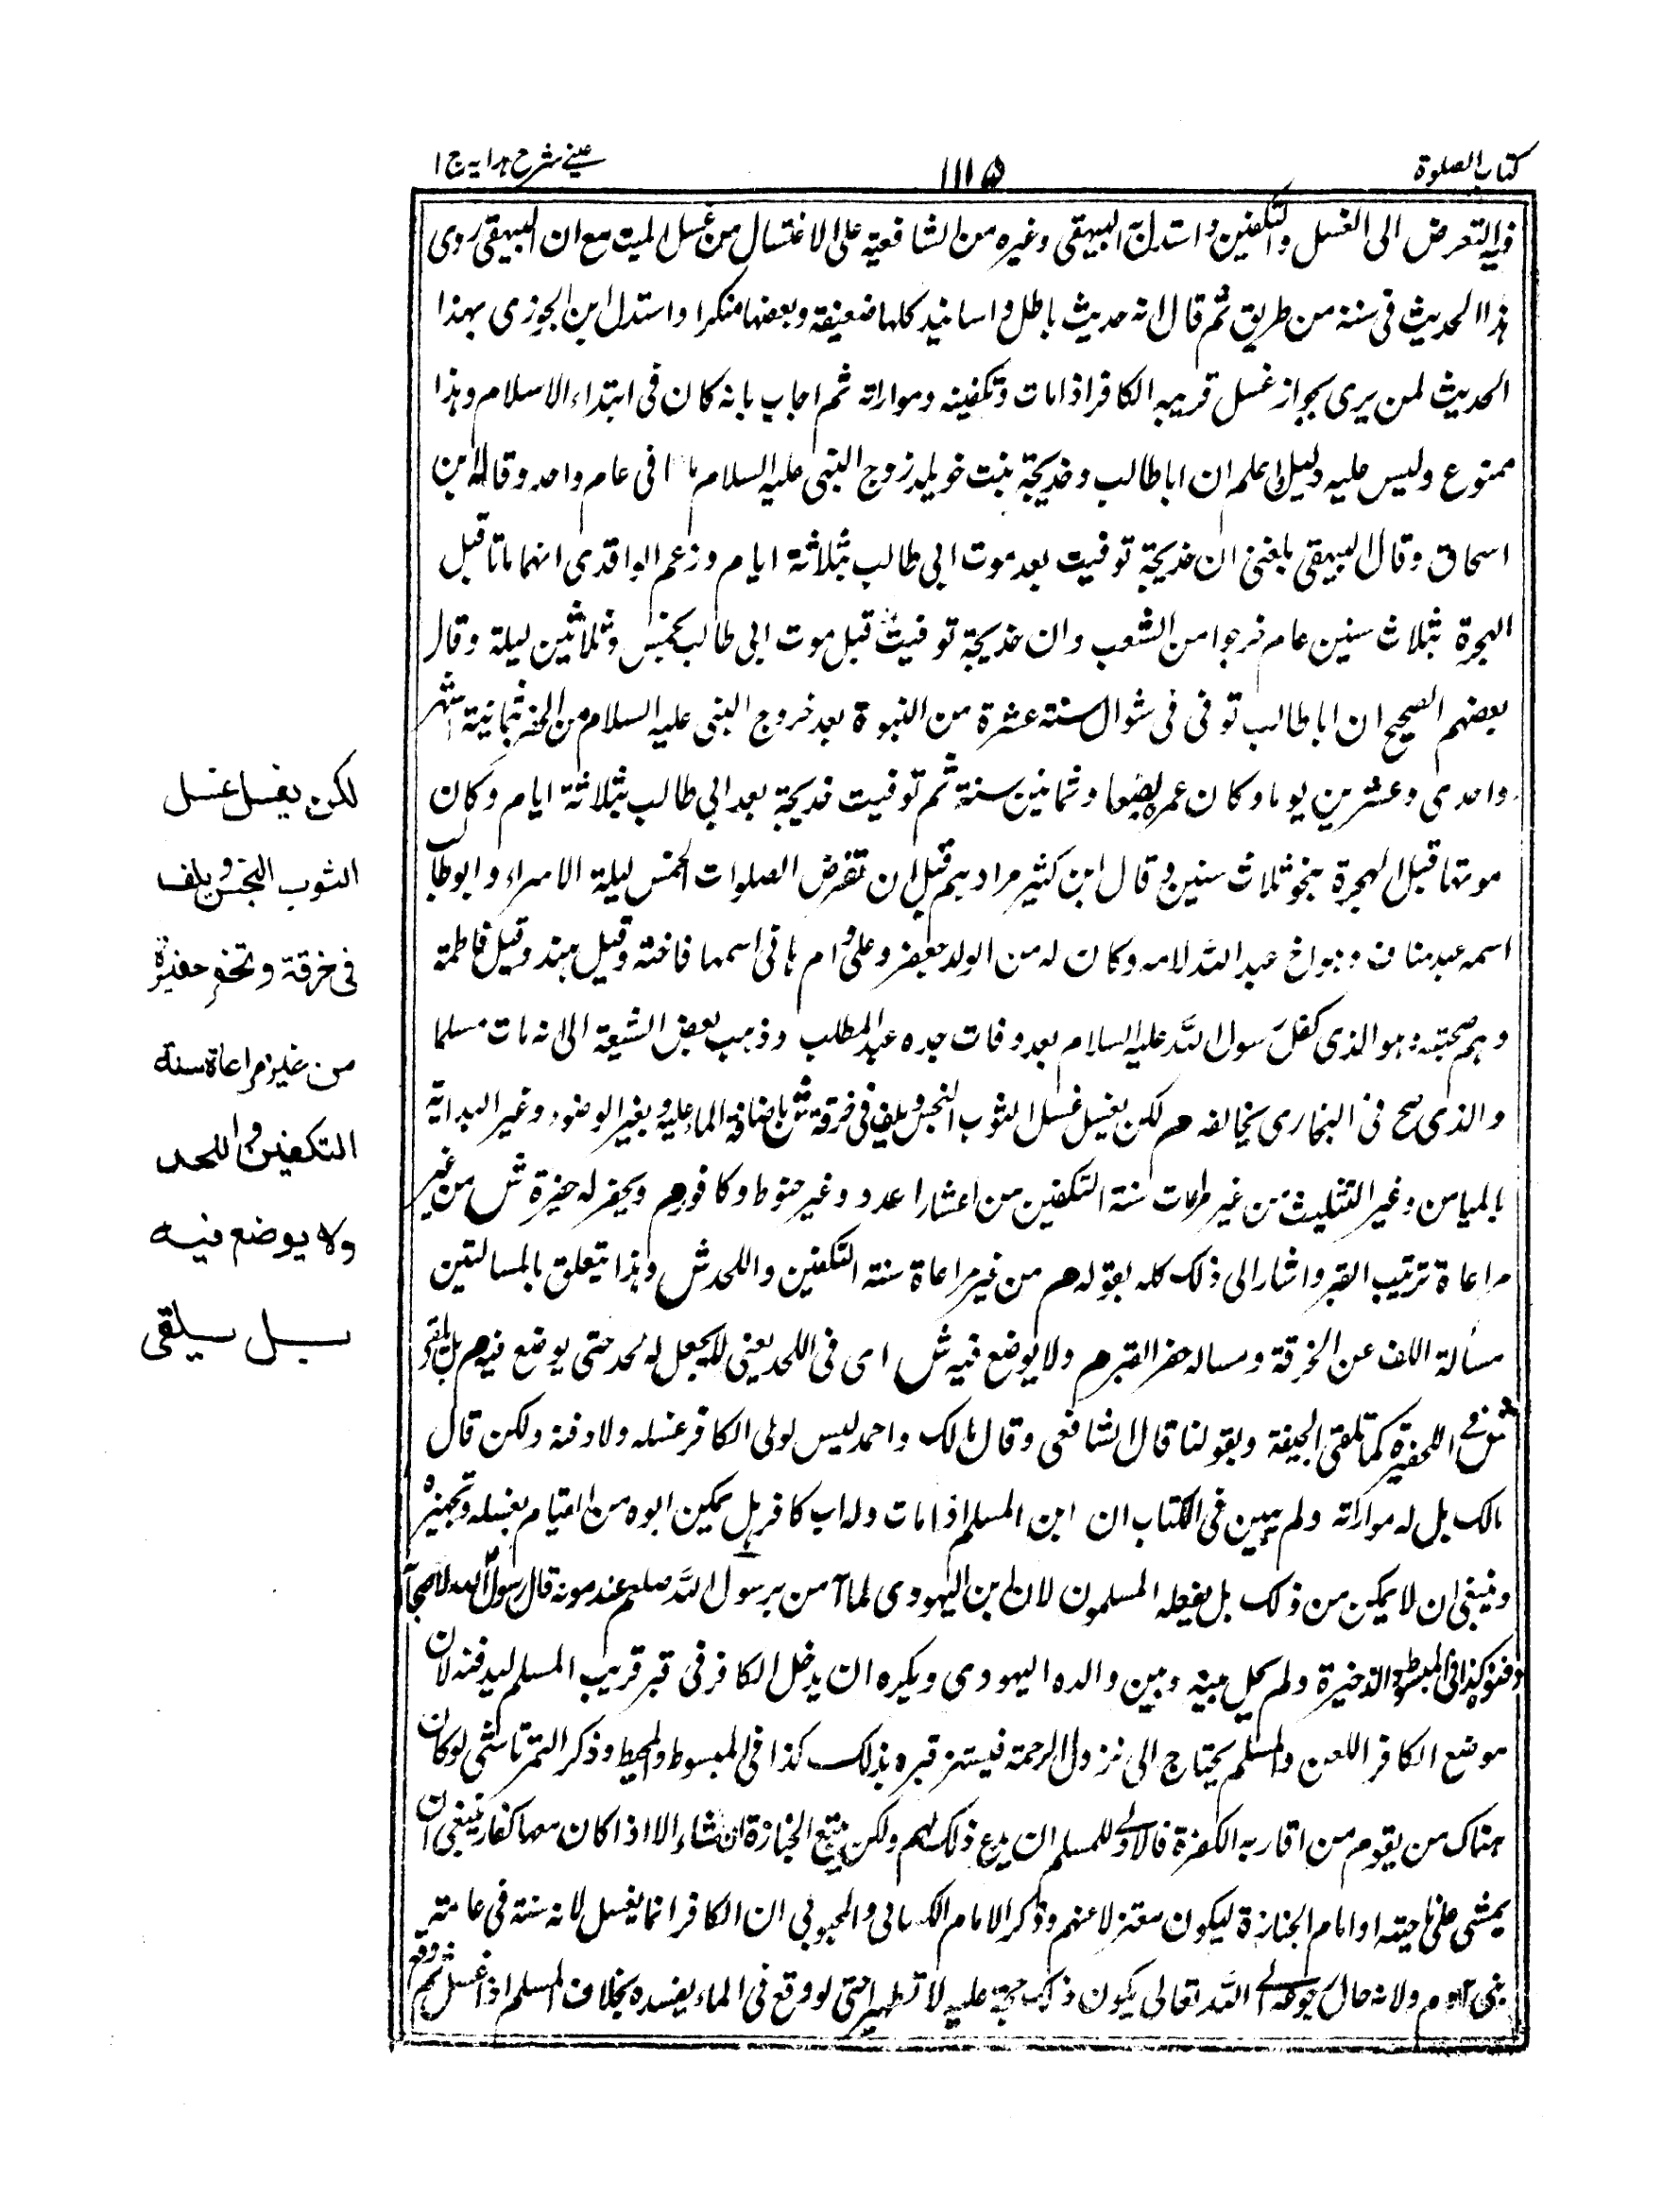 كتاب الصلوة
١١١٥
عينے شرح هدايه ج ١
فيه التعرض الى الغسل والتكفين واستدل به البيهقى وغيره من الشافعية على الاغتسال من غسل الميت مع ان البيهقى روى
هذا الحديث فى سننه من طريق ثم قال انه حديث باطل واسانيد كلها ضعيفة وبعضها منكرا واستدل ابن الجوزى بهذا
الحديث لمن يرى بجواز غسل قريبه الكافر اذا مات وتكفينه ومواراته ثم اجاب بانه كان فى ابتداء الاسلام وهذا
ممنوع وليس عليه دليل واعلم ان ابا طالب وخديجة بنت خويلد زوج النبى عليه السلام ماتا فى عام واحد وقاله ابن
اسحاق وقال البيهقى بلغنى ان خديجة توفيت بعد موت ابى طالب بثلاثة ايام وزعم الواقدى انهما ماتا قبل
الهجرة بثلاث سنين عام خرجوا من الشعب وان خديجة توفيت قبل موت ابى طالب بخمس وثلاثين ليلة وقال
بعضهم الصحيح ان ابا طالب توفى فى شوال سنة عشرة من النبوة بعد خروج النبى عليه السلام من الحصر بثمانية اشهر
واحدى وعشرين يوما وكان عمره بضعا وثمانين سنة ثم توفيت خديجة بعد ابى طالب بثلاثة ايام وكان
موتها قبل الهجرة بنحو ثلاث سنين وقال ابن كثير مرادهم قبل ان تفرض الصلوات الخمس ليلة الاسراء وابو طالب
اسمه عبد مناف وهو اخ عبد الله لامه وكان له من الولد جعفر وعلى وام هانى اسمها فاختة وقيل هند وقيل فاطمة
ولهم صحبته وهو الذى كفل رسول الله عليه السلام بعد وفات جده عبد المطلب وذهب بعض الشيعة الى انه مات مسلما
والذى صح فى البخارى يخالفه م لكن يغسل غسل الثوب النجس ويلف فى خرقة ش باضافة الماء عليه وبغير الوضوء وغير البداية
بالميامن وغير التثليث من غير مراعات سنة التكفين من اعشارا عدد وغير حنوط وكافور م ويحفر له حفيرة ش من غير
مراعاة ترتيب القبر واشار الى ذلك كله بقوله م من غير مراعاة سنة التكفين واللحد ش وهذا يتعلق بالمسالتين
مسألة اللف عن الخرقة ومساله حفر القبر م ولا يوضع فيه ش اى فى اللحد يعنى لا يجعل له لحد حتى يوضع فيه م بل يلقى
ش فے الحفيرة كما تلقى الجيفة وبقولنا قال الشافعى وقال مالك واحمد ليس لولى الكافر غسله ولا دفنه ولكن قال
مالك بل له مواراته ولم يبين فى الكتاب ان ابن المسلم اذا مات وله اب كافر هل يمكن ابوه من القيام بغسله وتجهيزه
وينبغى ان لا يمكن من ذلك بل يغسله المسلمون لان ابن اليهودى لما آمن برسول الله صلعم عند موته قال رسول الله لاصحابه
ادفنوه كذا فى المبسوط والذخيرة ولم يخل بينه وبين والده اليهودى ويكره ان يدخل الكافر فى قبر قريب المسلم ليدفنه لان
موضع الكافر اللعن والمسلم يحتاج الى نزول الرحمة فيستنزه قبره بذلك كذا فى المبسوط والمحيط وذكر التمرتاشى لو كان
هناك من يقوم من اقاربه الكفرة فالاولى للمسلم ان يدع ذلك لهم ولكن يتبع الجنازة ان شاء الا اذا كان معها كفار ينبغى ان
يمشى على ناحيته او امام الجنازة ليكون معتزلا عنهم وذكر الامام الكسانى والمحبوبى ان الكافر انما يغسل لانه سنة فى عامة
بنى آدم ولانه حال رجوعه الى الله تعالى يكون ذلك حجة عليه لا تطهيرا حتى لو وقع فى الماء يفسده بخلاف المسلم اذا غسل ثم وقع
لكن يغسل غسل
الثوب النجس ويلف
فى خرقة وتحفر حفيرة
من غير مراعاة سنة
التكفين واللحد
ولا يوضع فيه
بل يلقى